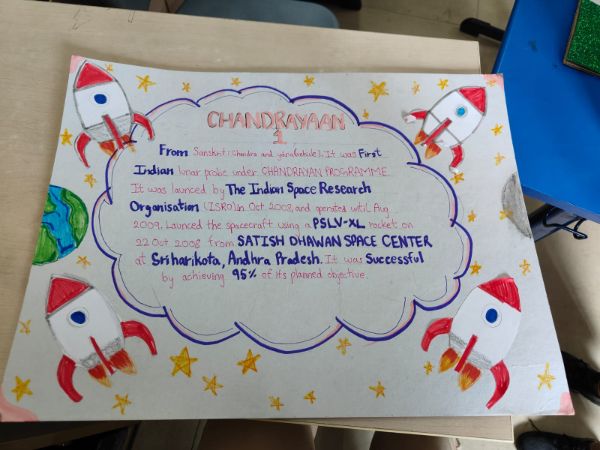 CHANDRAYAAN
1
From Sanskrit: Chandra and yana(vehicle). It was First
Indian lunar probe under CHANDRAYAN PROGRAMME.
It was launced by The Indian Space Research
Organisation (ISRO) in Oct 2008, and operated until Aug
2009. Launced the spacecraft using a PSLV-XL rocket on
22 Oct 2008 from SATISH DHAWAN SPACE CENTER
at Sriharikota, Andhra Pradesh. It was Successful
by achieving 95% of its planned objective.